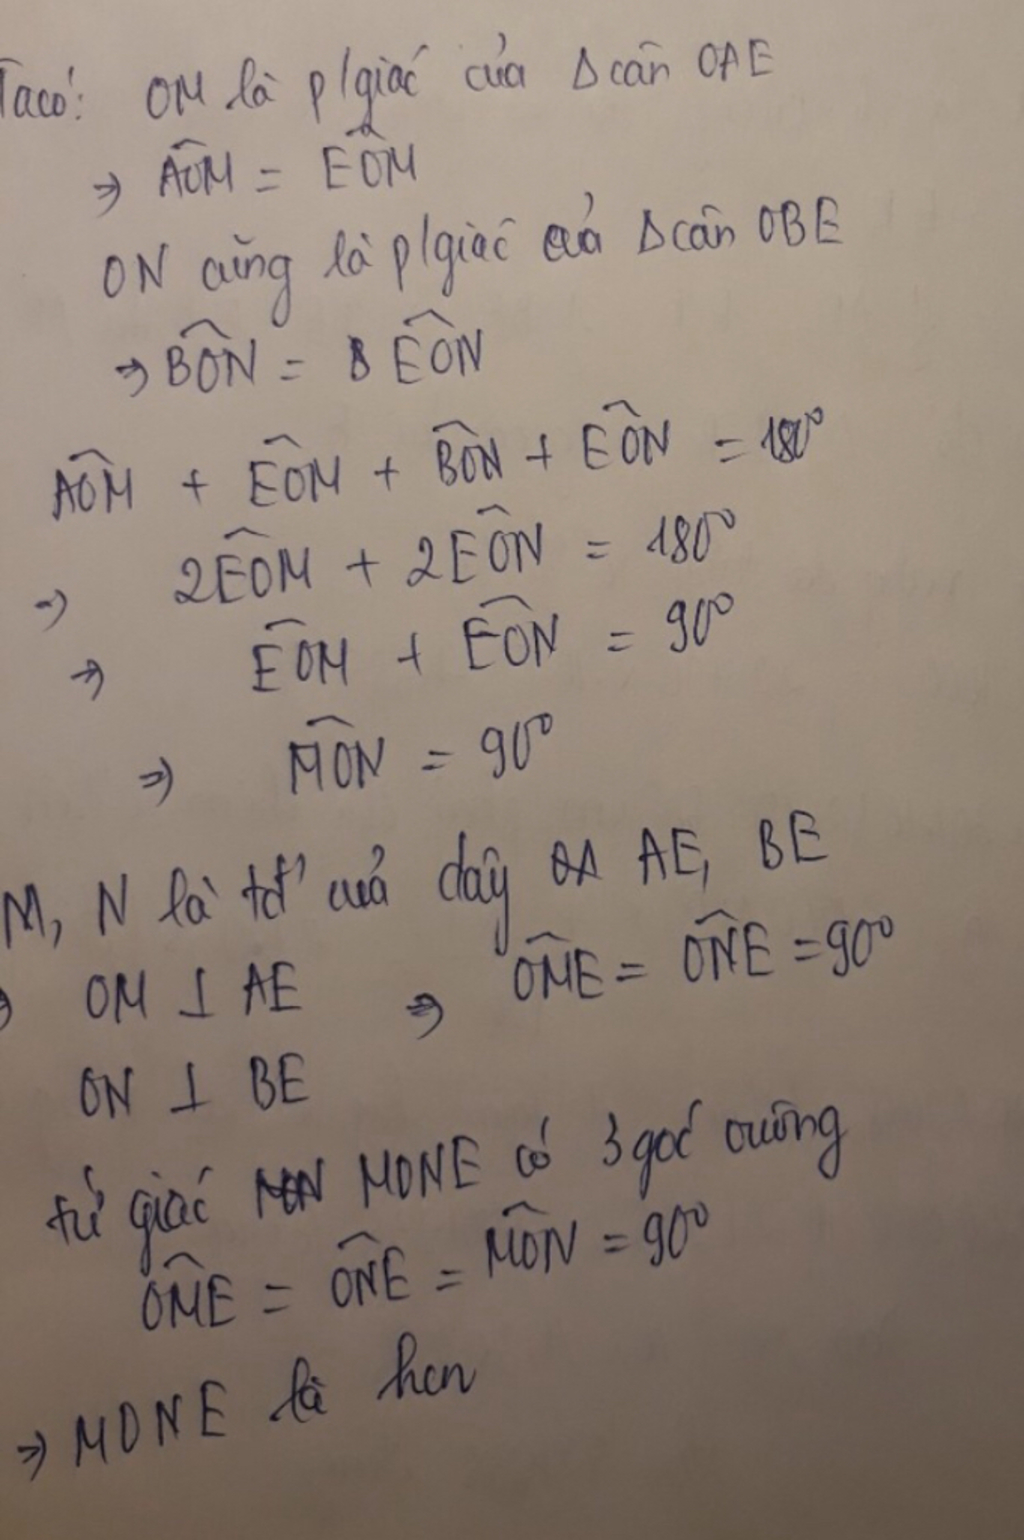 Ta có: OM là p/giác của Δ cân OAE
⇒ AÔM = EÔM
ON cũng là p/giác của Δ cân OBE
⇒ BÔN = EÔN
AÔM + EÔM + BÔN + EÔN = 180°
⇒ 2EÔM + 2EÔN = 180°
⇒ EÔM + EÔN = 90°
⇒ MÔN = 90°
M, N là tđ của dây AE, BE
⇒ OM ⊥ AE ⇒ OM̂E = ON̂E = 90°
ON ⊥ BE
tứ giác MONE có 3 góc vuông
OM̂E = ON̂E = MÔN = 90°
⇒ MONE là hcn